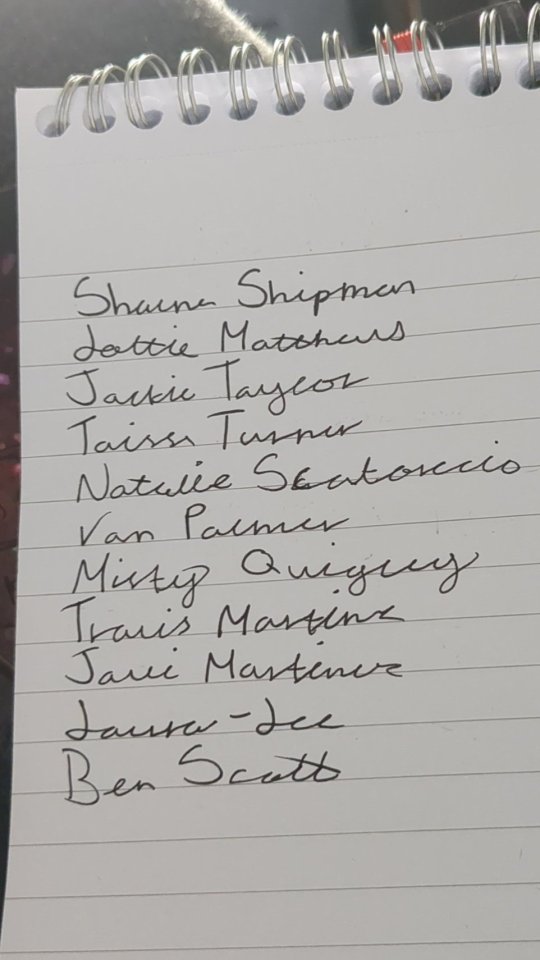 Shauna Shipman
Lottie Matthews
Jackie Taylor
Taissa Turner
Natalie Scatorccio
Van Palmer
Misty Quigley
Travis Martinez
Javi Martinez
Laura-Lee
Ben Scott